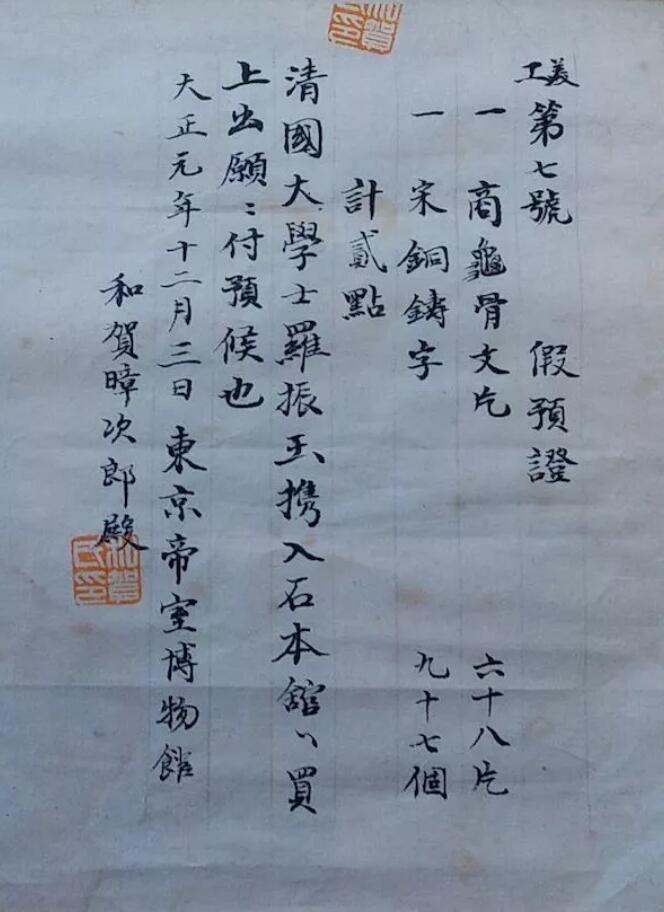 美工第七號　假預證
一　商龜骨文片　六十八片
一　宋銅鋳字　九十七個
計貳點
清國大學士羅振玉携入石本舘ヘ買
上出願ニ付預候也
大正元年十二月三日 東京帝室博物館
和賀暲次郎殿